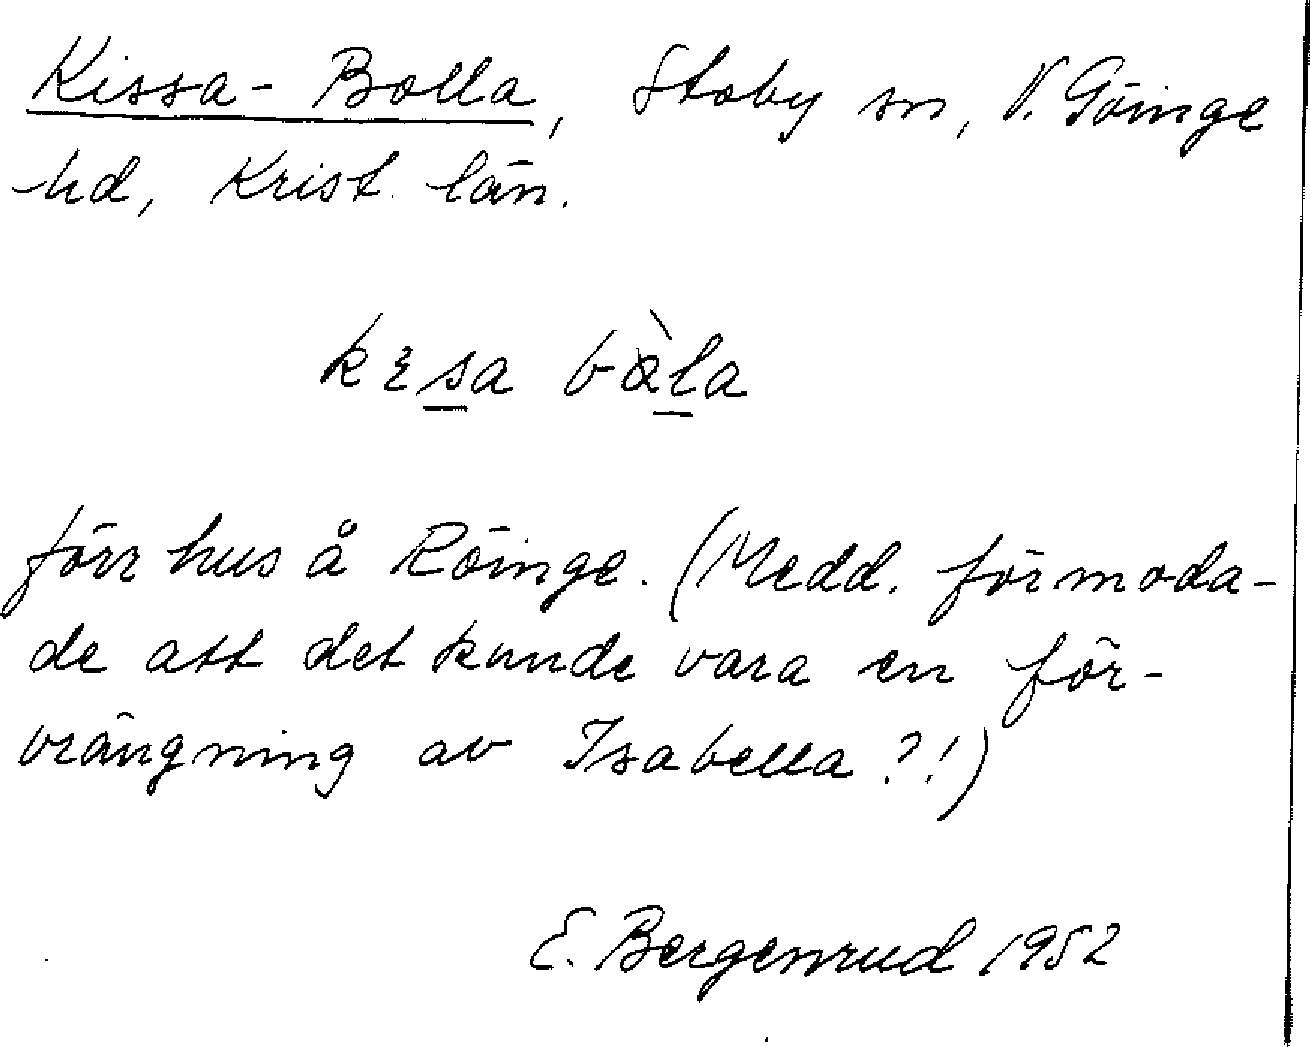 Kissa-Bolla, Stoby sn, V. Göinge
hd, Krist. län.
kɛs̲a bàl̲a
förr hus å Röinge. (Medd. förmoda-
de att det kunde vara en för-
vrängning av Isabella?!)
E. Bergenrud 1952